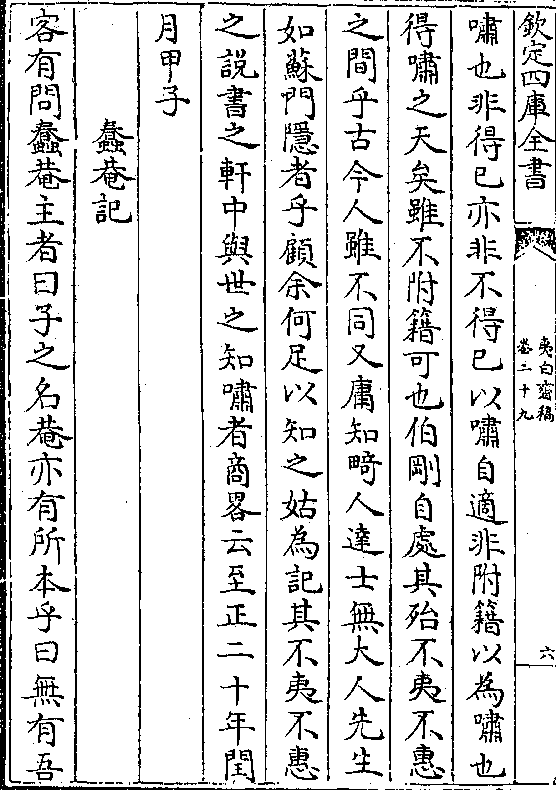 欽定四庫全書
夷白齋稿
卷二十九
六
嘯也非得已亦非不得已以嘯自適非附籍以為嘯也
得嘯之天矣雖不附籍可也伯剛自處其殆不夷不惠
之間乎古今人雖不同又庸知畸人達士無大人先生
如蘇門隱者乎顧余何足以知之姑為記其不夷不惠
之説書之軒中與世之知嘯者商畧云至正二十年閏
月甲子
蠢菴記
客有問蠢菴主者曰子之名菴亦有所本乎曰無有吾